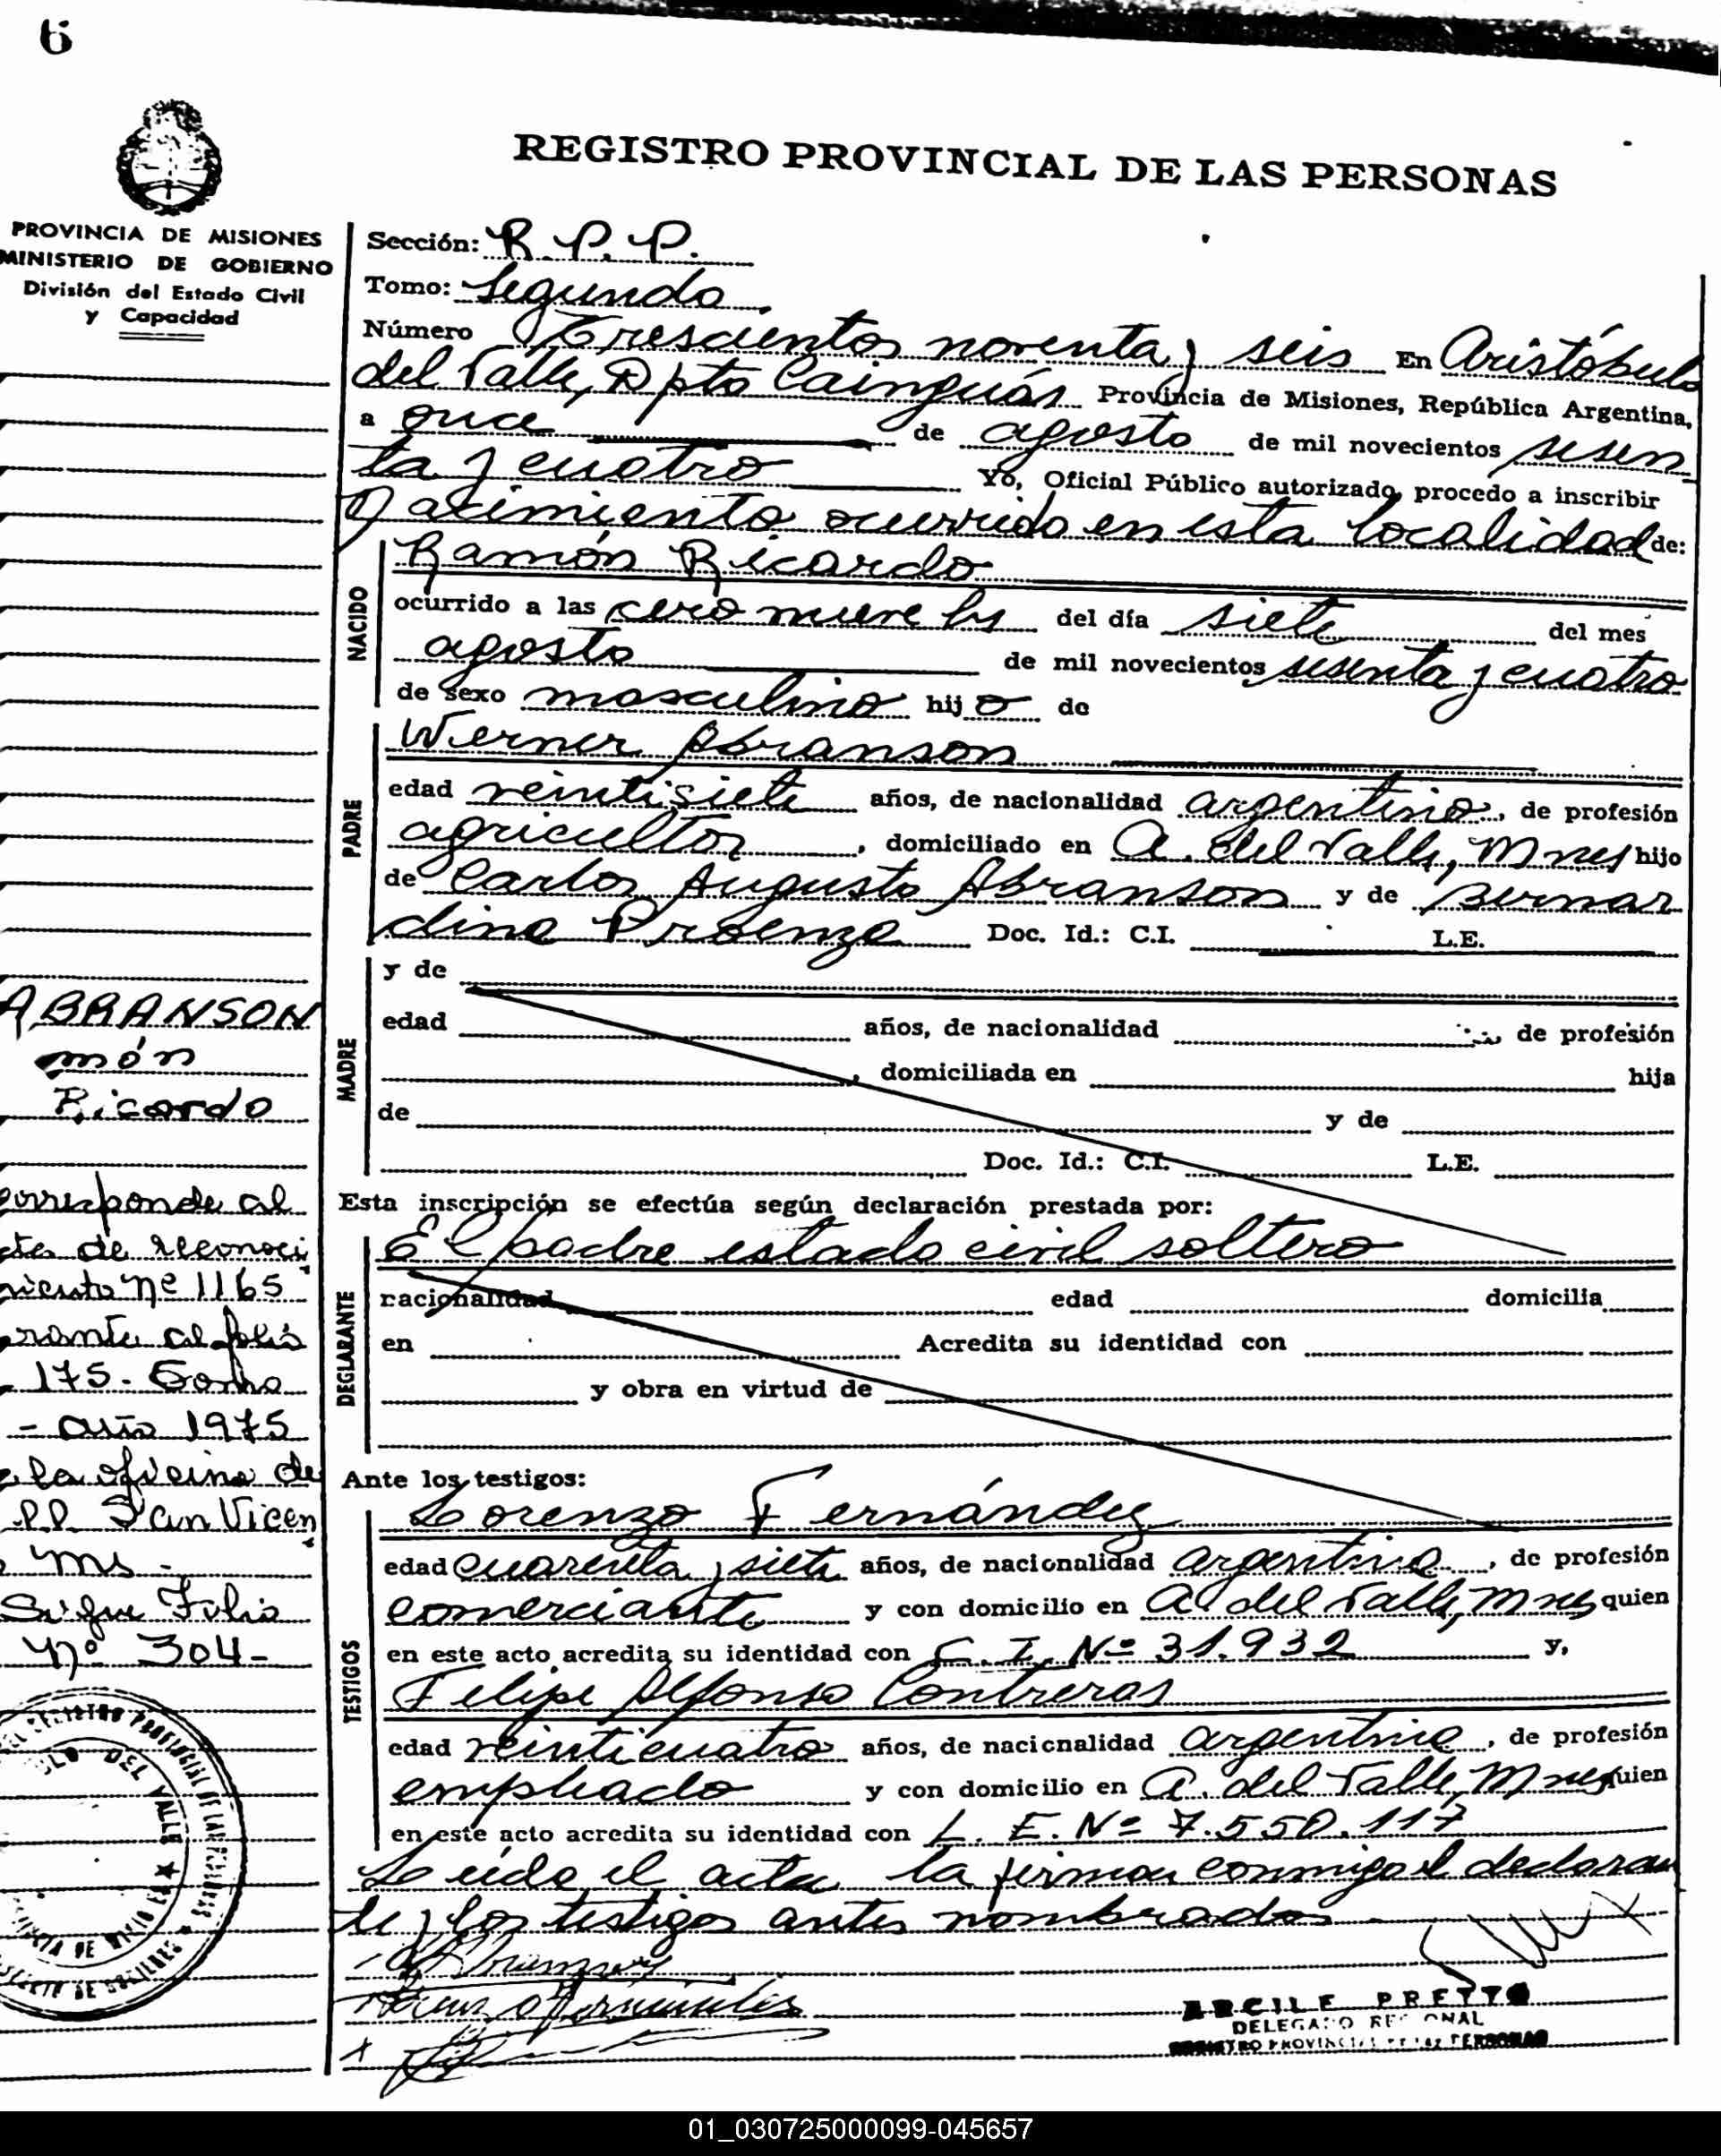 6
REGISTRO PROVINCIAL DE LAS PERSONAS
PROVINCIA DE MISIONES
MINISTERIO DE GOBIERNO
División del Estado Civil
y Capacidad
Sección: R.P.P.
Tomo: Segundo
Número Trescientos noventa y seis En Aristóbulo
del Valle, Dpto Cainguás Provincia de Misiones, República Argentina,
a once de agosto de mil novecientos sesen
ta y cuatro Yo, Oficial Público autorizado, procedo a inscribir
Nacimiento ocurrido en esta localidad de:
NACIDO
Ramón Ricardo
ocurrido a las cero nueve hs del día siete del mes
agosto de mil novecientos sesenta y cuatro
de sexo masculino hijo de
PADRE
Werner Abranson
edad veintisiete años, de nacionalidad argentino, de profesión
agricultor, domiciliado en A. del Valle, Mnes hijo
de Carlos Augusto Abranson y de Bernar
dina Proenza Doc. Id.: C.I. L.E.
MADRE
y de
edad años, de nacionalidad de profesión
, domiciliada en hija
de y de
Doc. Id.: C.I. L.E.
Esta inscripción se efectúa según declaración prestada por:
DECLARANTE
El padre estado civil soltero
nacionalidad edad domicilia
en Acredita su identidad con
y obra en virtud de
Ante los testigos:
TESTIGOS
Lorenzo Fernández
edad cuarenta y siete años, de nacionalidad argentina, de profesión
comerciante y con domicilio en A. del Valle, Mnes quien
en este acto acredita su identidad con C. I. Nº 31.932 y,
Felipe Alfonso Contreras
edad veinticuatro años, de nacionalidad argentina, de profesión
empleado y con domicilio en A. del Valle, Mnes quien
en este acto acredita su identidad con L. E. Nº 7.550.117
Leída el acta la firman conmigo el declaran
te y los testigos antes nombrados
ARCILE PRETTO
DELEGADO REGIONAL
REGISTRO PROVINCIAL DE LAS PERSONAS
ABRANSON
món
Ricardo
corresponde al
cta de reconoci
miento nº 1165
brante al folio
175. Tomo
- año 1975
la oficina de
P.P. San Vicen
Ms -
Sigue Folio
nº 304-
REGISTRO PROVINCIAL DE LAS PERSONAS
DEL VALLE
01_030725000099-045657